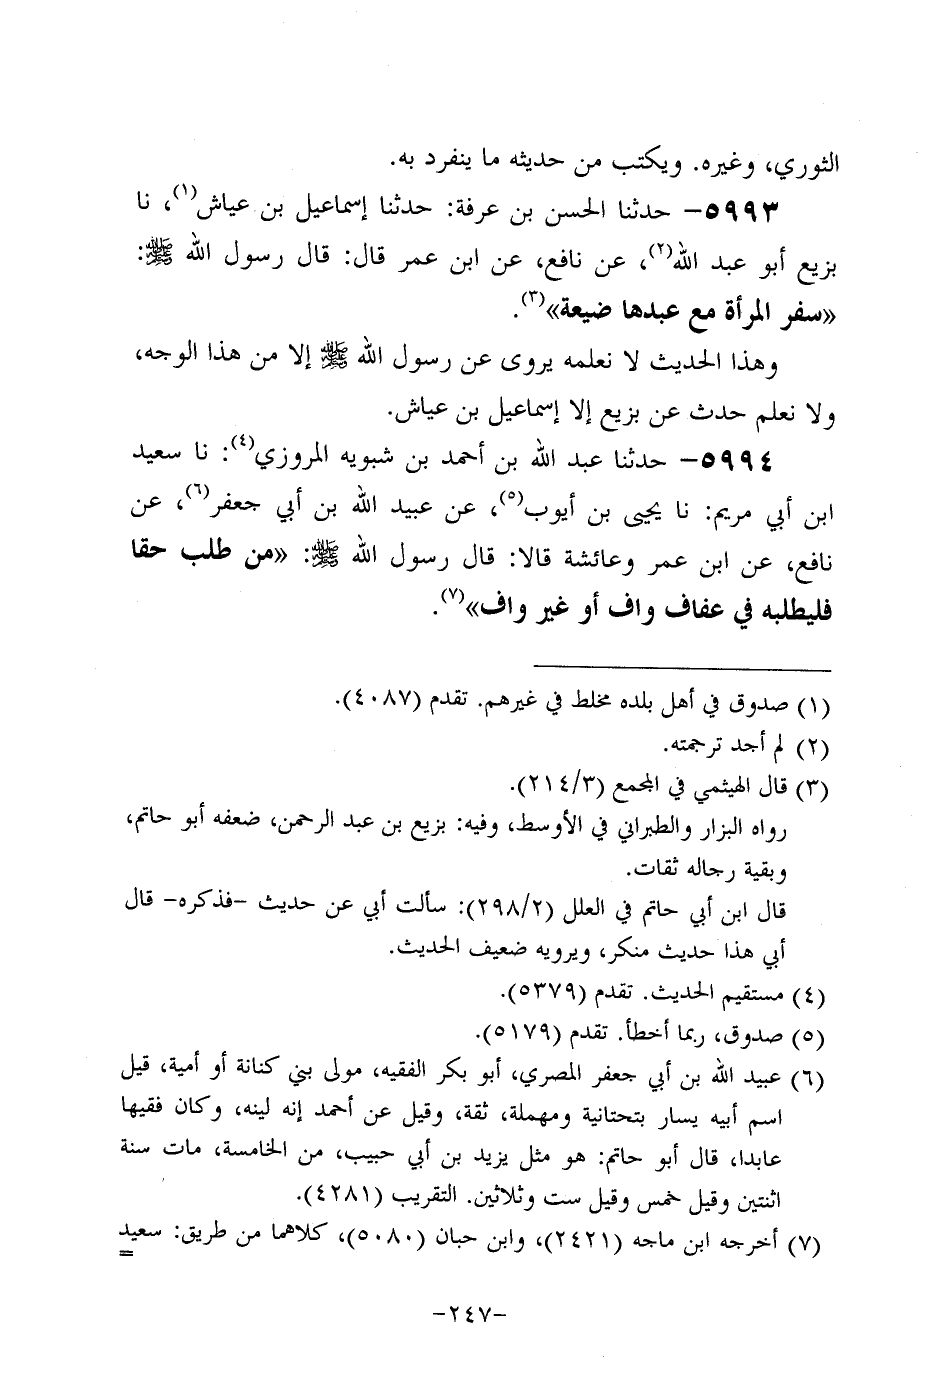 الثوري، وغيره. ويكتب من حديثه ما ينفرد به.
٥٩٩٣- حدثنا الحسن بن عرفة: حدثنا إسماعيل بن عياش(١)، نا
بزيع أبو عبد الله(٢)، عن نافع، عن ابن عمر قال: قال رسول الله ﷺ:
«سفر المرأة مع عبدها ضيعة»(٣).
وهذا الحديث لا نعلمه يروى عن رسول الله ﷺ إلا من هذا الوجه،
ولا نعلم حدث عن بزيع إلا إسماعيل بن عياش.
٥٩٩٤- حدثنا عبد الله بن أحمد بن شبويه المروزي(٤): نا سعيد
ابن أبي مريم: نا يحيى بن أيوب(٥)، عن عبيد الله بن أبي جعفر(٦)، عن
نافع، عن ابن عمر وعائشة قالا: قال رسول الله ﷺ: «من طلب حقا
فليطلبه في عفاف واف أو غير واف»(٧).
(١) صدوق في أهل بلده مخلط في غيرهم. تقدم (٤٠٨٧).
(٢) لم أجد ترجمته.
(٣) قال الهيثمي في المجمع (٢١٤/٣).
رواه البزار والطبراني في الأوسط، وفيه: بزيع بن عبد الرحمن، ضعفه أبو حاتم،
وبقية رجاله ثقات.
قال ابن أبي حاتم في العلل (٢٩٨/٢): سألت أبي عن حديث -فذكره- قال
أبي هذا حديث منكر، ويرويه ضعيف الحديث.
(٤) مستقيم الحديث. تقدم (٥٣٧٩).
(٥) صدوق، ربما أخطأ. تقدم (٥١٧٩).
(٦) عبيد الله بن أبي جعفر المصري، أبو بكر الفقيه، مولى بني كنانة أو أمية، قيل
اسم أبيه يسار بتحتانية ومهملة، ثقة، وقيل عن أحمد إنه لينه، وكان فقيها
عابدا، قال أبو حاتم: هو مثل يزيد بن أبي حبيب، من الخامسة، مات سنة
اثنتين وقيل خمس وقيل ست وثلاثين. التقريب (٤٢٨١).
(٧) أخرجه ابن ماجه (٢٤٢١)، وابن حبان (٥٠٨٠)، كلاهما من طريق: سعيد
=
-٢٤٧-